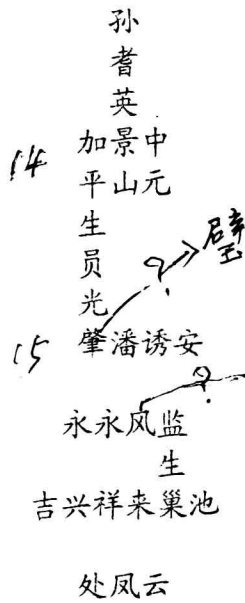 孙
耆
英
14 加景中
平山元
生
员
光 璧
15 肇潘诱安
永永风监
生
吉兴祥来巢池
处凤云